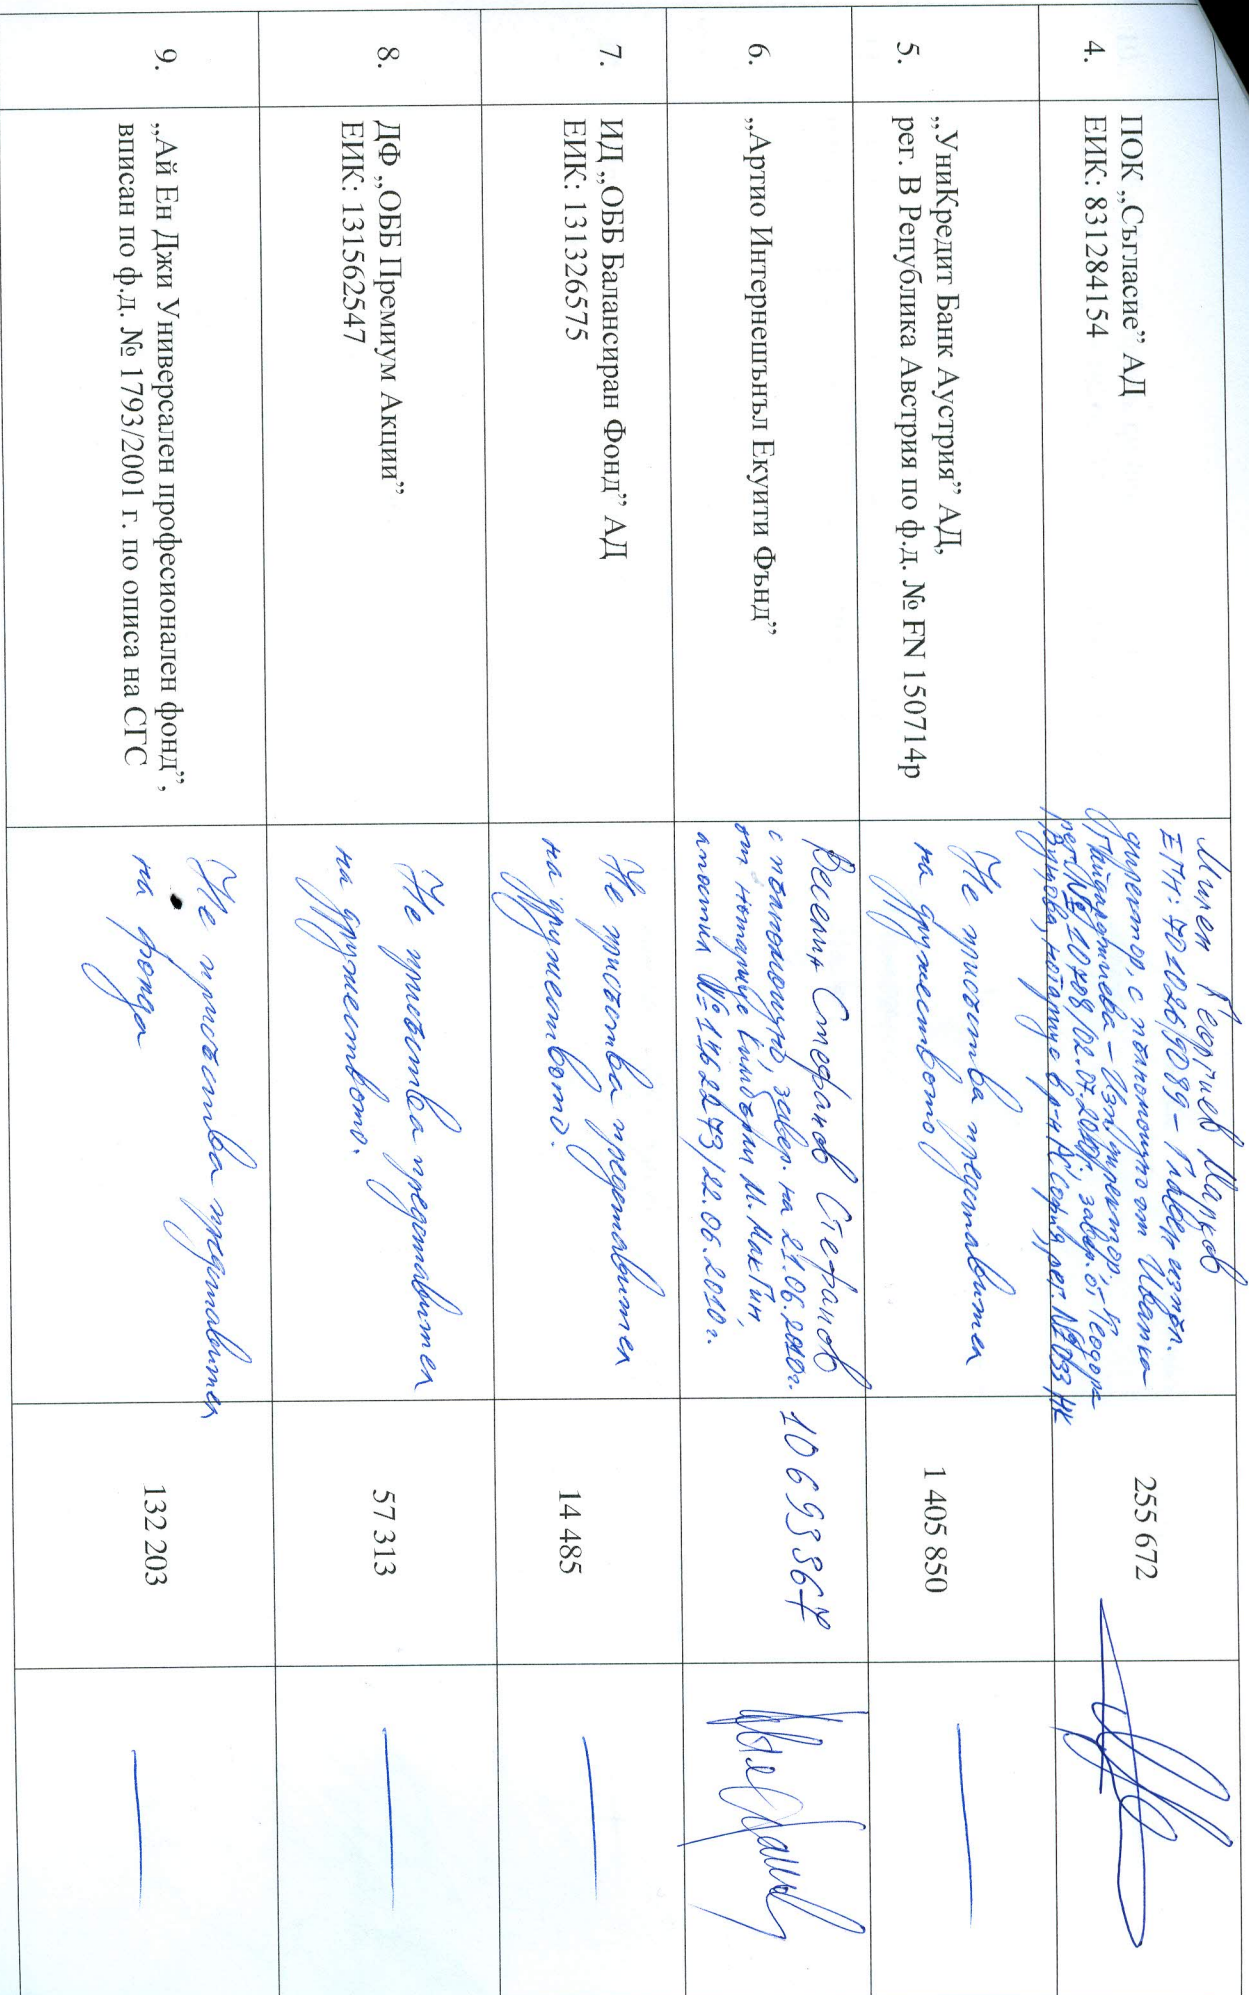 4.
ПОК „Съгласие” АД
ЕИК: 831284154
Милен Георгиев Марков
ЕГН: 7010269089 – Главен изпълн.
директор, с пълномощно от Иванка
– Изп. директор,
рег. № 10708/02.07.2010г., завер. от Теодора
нотариус в р-н РС София, рег. № 033 НК
255 672
5.
„УниКредит Банк Аустрия” АД,
рег. В Република Австрия по ф.д. № FN 150714p
Не присъства представител
на дружеството
1 405 850
6.
„Артио Интернешънъл Екуити Фънд”
Веселин Стефанов Стефанов
с пълномощно, завер. на 21.06.2010г.
от нотариус Кимбърли М. МакГин,
апостил № /22.06.2010 г.
7.
ИД „ОББ Балансиран Фонд” АД
ЕИК: 131326575
Не присъства представител
на дружеството.
14 485
8.
ДФ „ОББ Премиум Акции”
ЕИК: 131562547
Не присъства представител
на дружеството.
57 313
9.
„Ай Ен Джи Универсален професионален фонд”,
вписан по ф.д. № 1793/2001 г. по описа на СГС
Не присъства представител
на фонда
132 203